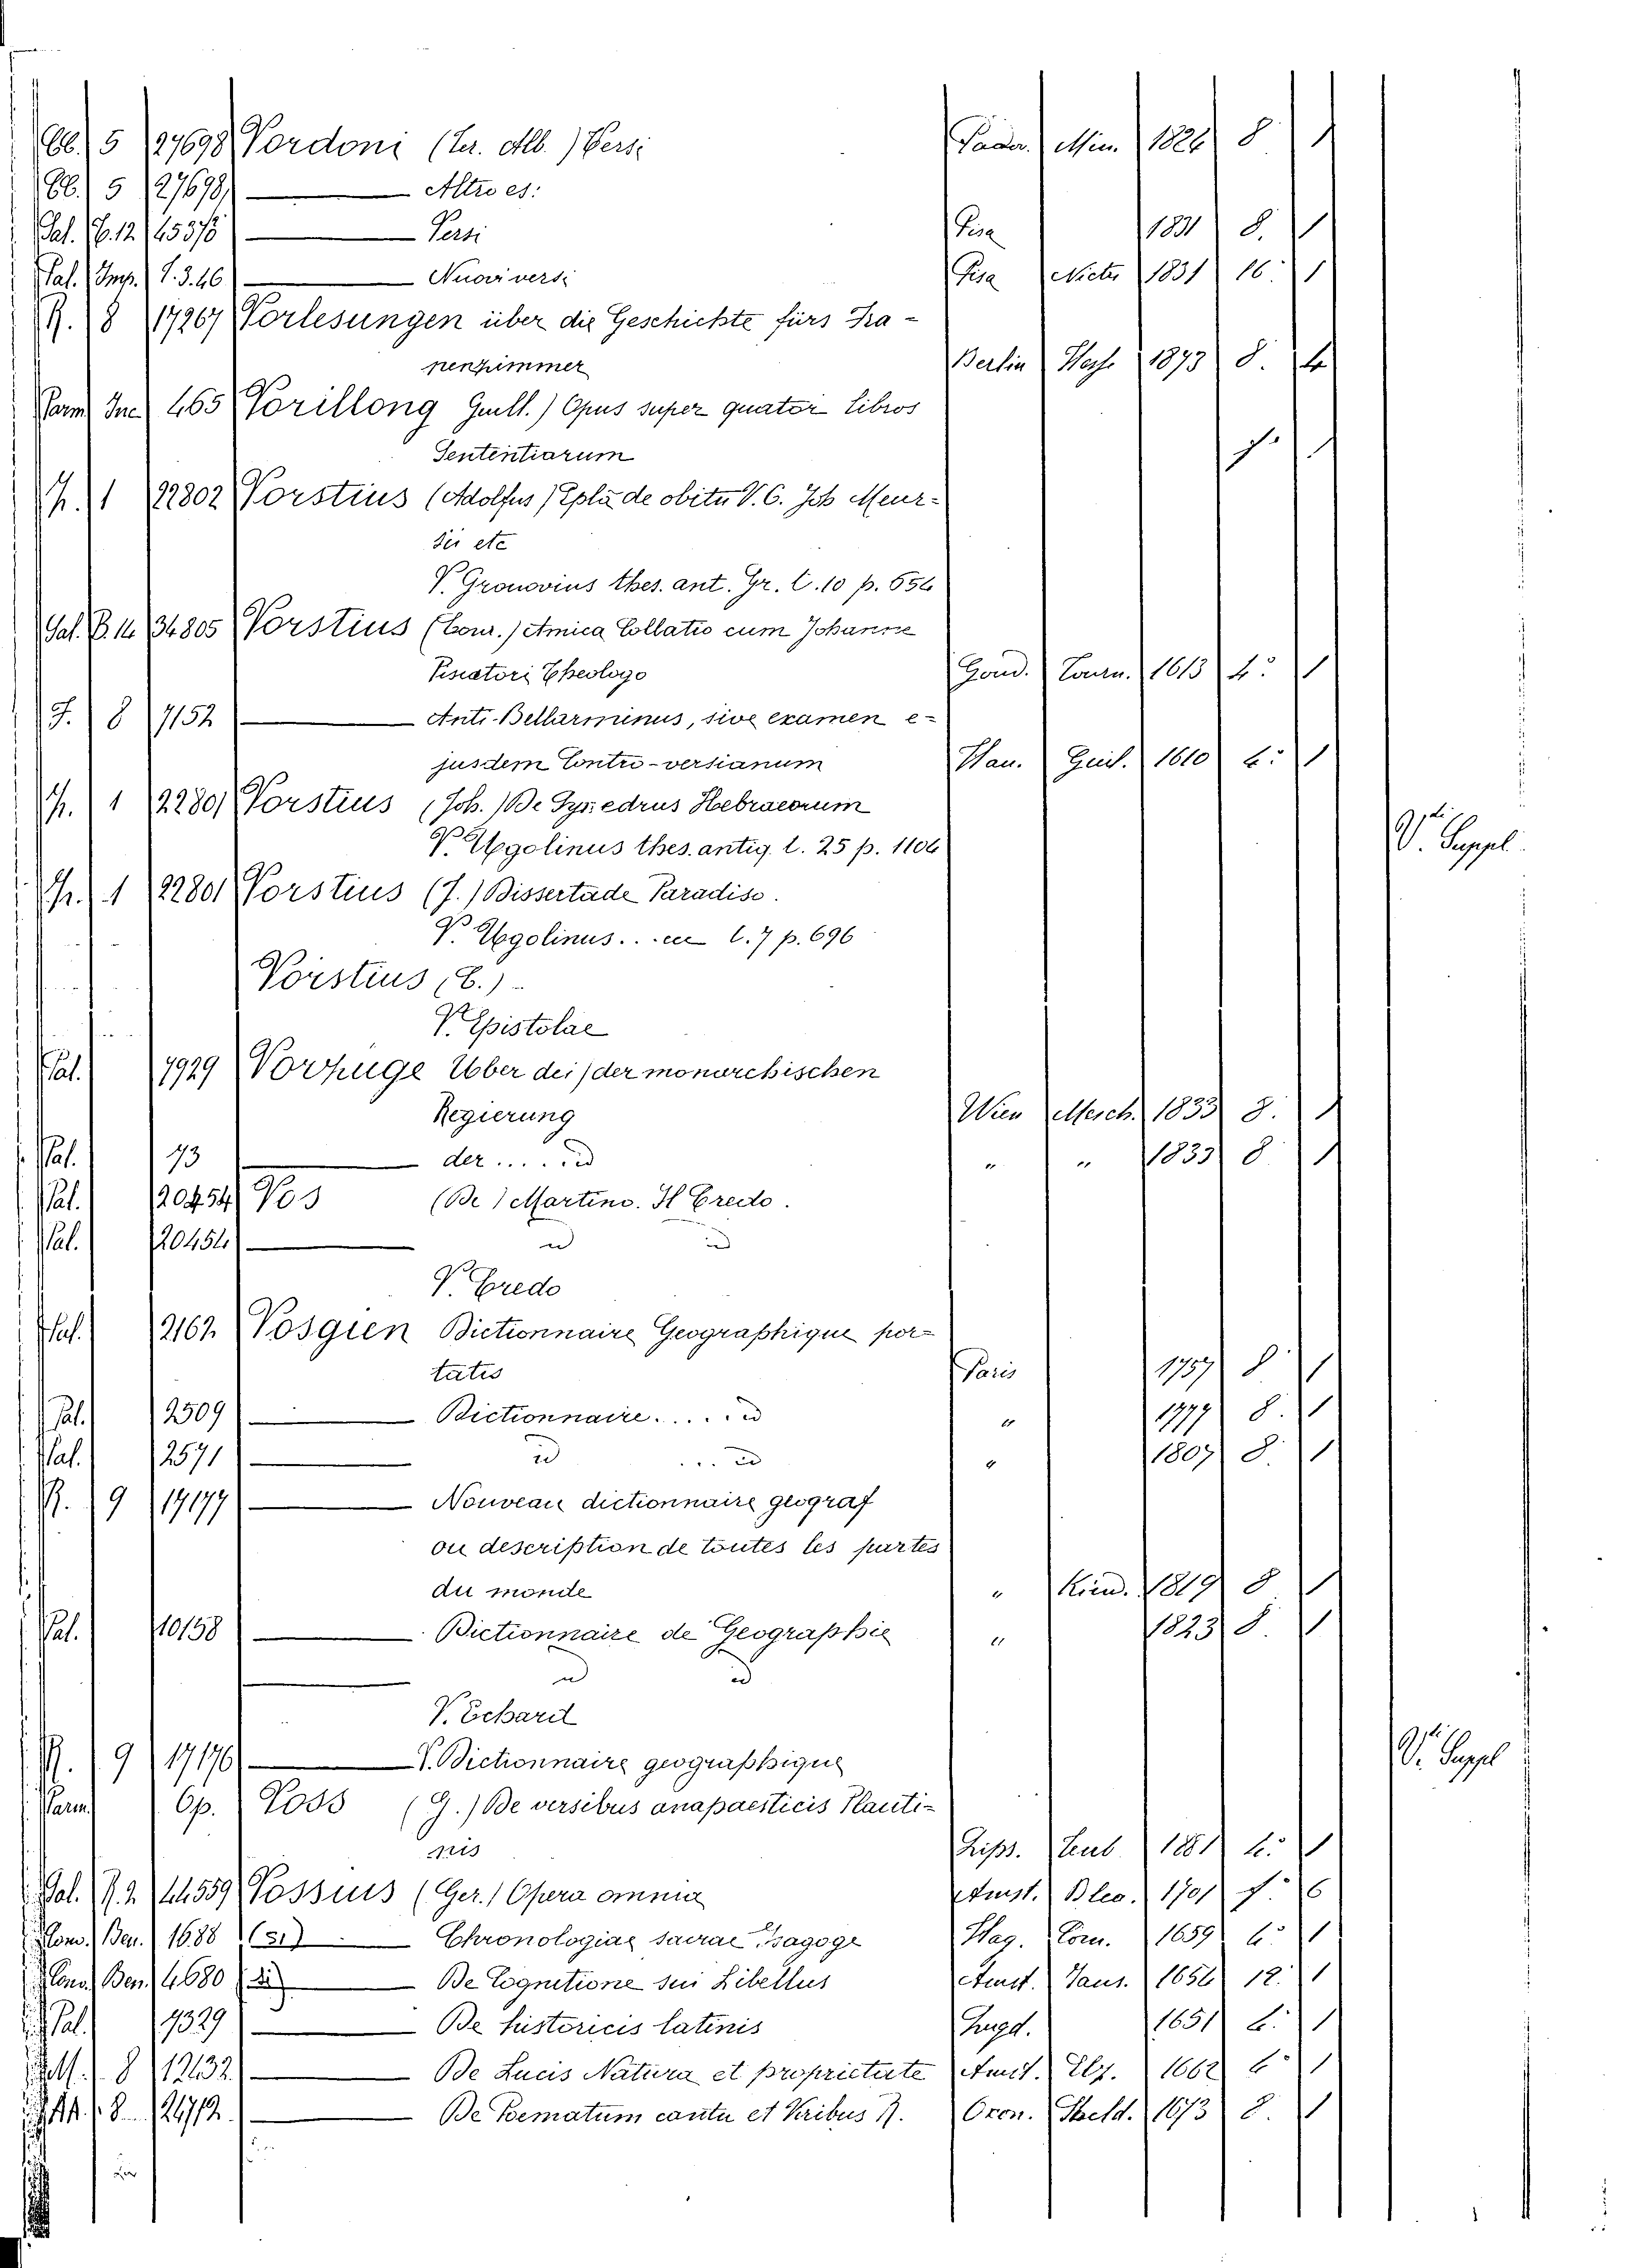 BB. 5 27698 Vordoni (Ter. Alb.) Versi Pader. Min. 1826 8 1
BB. 5 27698 Altro es:
Pal. B. 12 4537/8 Versi Pisa 1831 8. 1
Pal. Imp. 1. 3. 46 Nuovi versi Pisa Nistri 1831 16. 1
R. 8 17267 Vorlesungen über die Geschichte fürs Fra-
nenzimmer Berlin 1873 8.
Parm Inc 465 Vorillong Guill.) Opus super quator Libros
Sententiarum f.
H. 1 22802 Vorstius (Adolfus) Epla de obitu V. C. Joh Meur-
sei etc
V. Gronovius thes. ant. Gr. t. 10 p. 654
Pal. B. 14 34805 Vorstius (Conr.) Amica Collatio cum Johanne
Piscatori Theologo Goud. Tourn. 1613 4: 1
J. 8 7152 Anti-Bellarminus, sive examen e-
jusdem Contro-versianum Han. Guil. 1610 4: 1
H. 1 22801 Vorstius (Joh.) De Synedrus Hebraeorum
V. Ugolinus thes. antig. t. 25 p. 1104 V. Suppl
H. 1 22801 Vorstius (J.) Dissertade Paradiso.
V. Ugolinus... t. 7 p. 696
Vorstius (E.)
V. Epistolae
Pal. 7929 Vorzuge Uber dei (der monarchischen
Regierung Wien Mesch. 1833 8. 1
Pal. 73 der ..... id " " 1833 8. 1
Pal. 20454 Vos (De) Martino. Il Credo.
Pal. 20454 id id
V. Credo
Pal. 2162 Vosgien Dictionnaire Geographique por-
tatis Paris 1757 8. 1
Pal. 2509 Dictionnaire ..... id " 1777 8. 1
Pal. 2571 id ... id " 1807 8. 1
R. 9 17177 Nouveau dictionnaire geograf
ou description de toutes les partes
du monde " Rien. 1819 8 1
Pal. 10158 Dictionnaire de Geographie " 1823 8. 1
id id
V. Echard
R. 9 17176 V. Dictionnaire geographique V. Suppl
Parm Op. Voss (G.) De versibus anapaesticis Plauti-
nis Lips. Teub. 1881 4: 1
Pal. 7. 2. 44559 Vossius (Ger.) Opera omnia Amst. Bleo. 1701 f. 6
Mond. Ben. 1688 (51) Chronologiae sacrae Isagoge Hag. Com. 1659 4: 1
Mond. Ben. 4680 De Cognitione sui Libellus Amst. Jans. 1654 12. 1
Pal. 7329 De historicis latinis Lugd. 1651 4. 1
M. 8 12132 De Lucis Natura et proprietate Amst. Elz. 1662 4 1
M. 8 12172 De Poematum cantu et Viribus R. Oxon. Sheld. 1673 8. 1